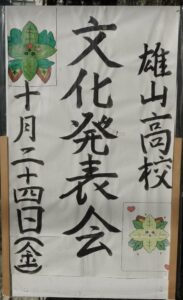 雄山高校
文化発表会
十月二十四日(金)